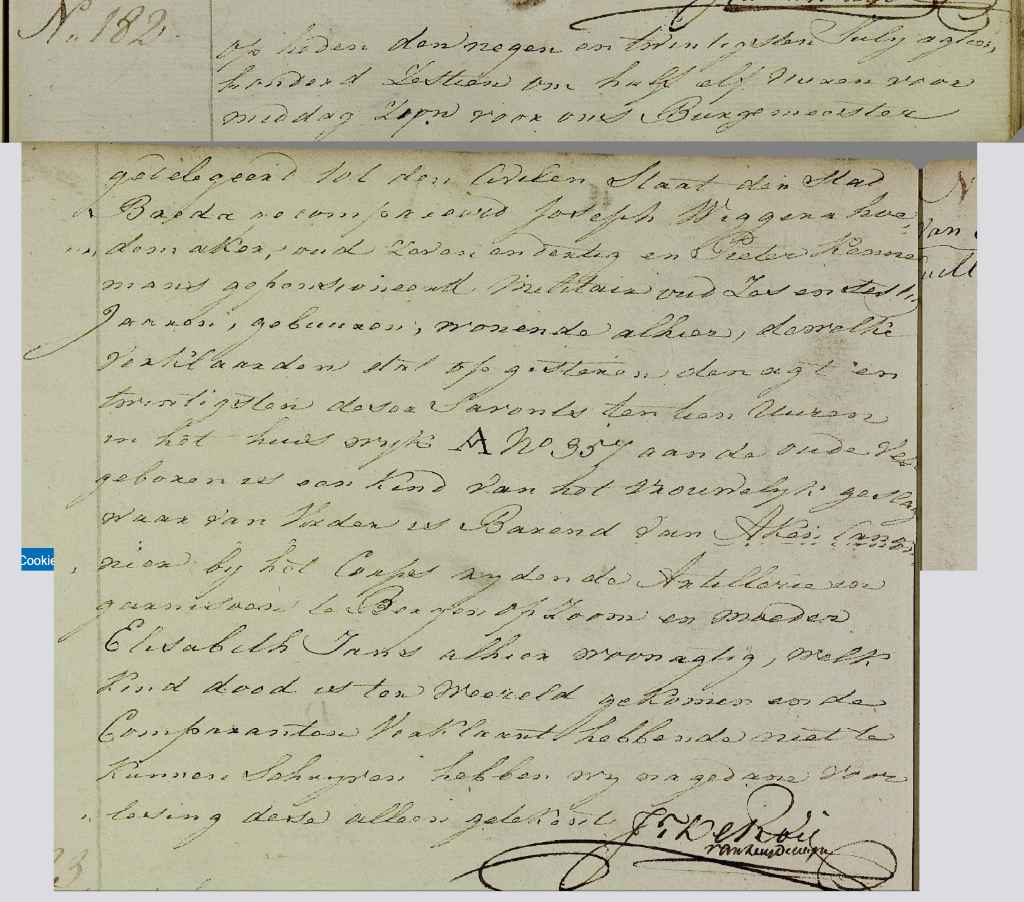 No. 182.
Op heden den negen en twintigsten July agtien
honderd Zestien om half elf Uuren voor
middag Zijn voor ons Burgemeester
gedelegeerd tot den Civilen Staat der Stad
Breda gecompareerd Joseph Wiggers hoe-
demaker, oud Zeven en dertig en Pieter
mans gepensioneerd Militair oud Zes en
Jaaren, gebuuren, wonende alhier, dewelke
Verklaarden dat op gisteren den agt en
twintigsten dezer Savonts ten tien Uuren
in het huis wijk A No 357 aan de oude
geboren is een Kind van het Vrouwelyk
waar van Vader is Barend van Aken Cano
nier by het Corps rydende Artillerie in
garnisoen te Bergen op Zoom en moeder
Elisabeth Jans alhier woonagtig, welk
Kind dood is ter Weereld gekomen en de
Comparanten Verklaart hebbende niet te
Kunnen Schryven hebben wy na gedane Voor
lesing deze alleen getekend
Van
Cookie